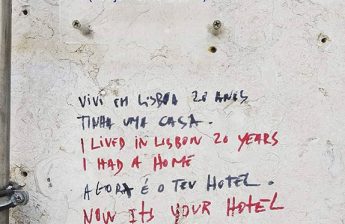 VIVI EM LISBOA 20 ANOS
TINHA UMA CASA.
I LIVED IN LISBON 20 YEARS
I HAD A HOME
AGORA É O TEU HOTEL.
NOW ITS YOUR HOTEL